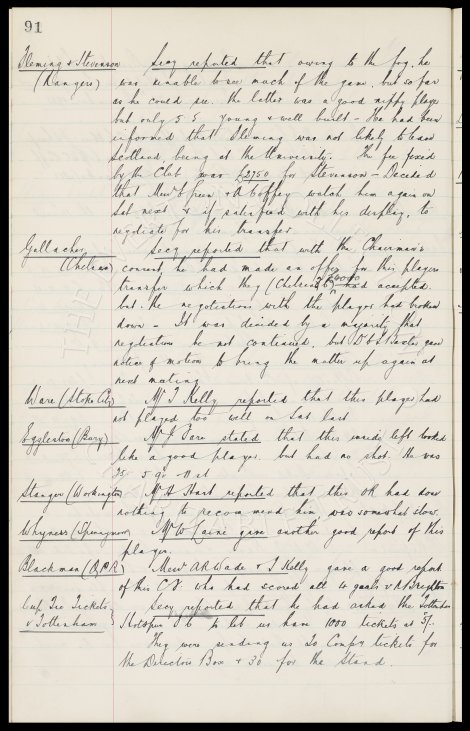 91
Fleming & Stevenson Secy reported that owing to the fog, he
(Rangers) was unable to see much of the game, but so far
as he could see the latter was a good nippy player
but only 5' 5 young & well built - He had been
informed that Fleming was not likely to leave
Scotland, being at the University. The fee fixed
by the Club was £2750 for Stevenson - Decided
that Messrs E Green & A Coffey watch him again on
Sat next & if satisfied with his display, to
negotiate for his transfer
Gallacher Secy reported that with the Chairman's
(Chelsea) consent, he had made an offer for this players
transfer which they (Chelsea F.C) had accepted
but the negotiations with the player had broken
down - It was decided by a majority that
negotiations be not continued, but gave
notice of motion to bring the matter up again at
next meeting
Ware (Stoke City) Mr T Kelly reported that this player had
not played too well on Sat last
Eggleston (Bury) Mr J stated that this inside left looked
like a good player but had no shot. He was
5' 9
Stanger (Workington) Mr H Hart reported that this OR had done
nothing to recommend him was somewhat slow.
Whyness (Spennymoor) Mr W gave another good report of this
player.
Blackman (Q.P.R) Messrs A R Wade & T Kelly gave a good report
of this C.F. who had scored all 4 goals v Brighton
Cup Tie Tickets Secy reported that he had asked the Tottenham
v Tottenham Hotspur F C to let us have 1000 tickets at 5/-
They were sending us 20 Compy tickets for
the Directors Box & 30 for the Stand.